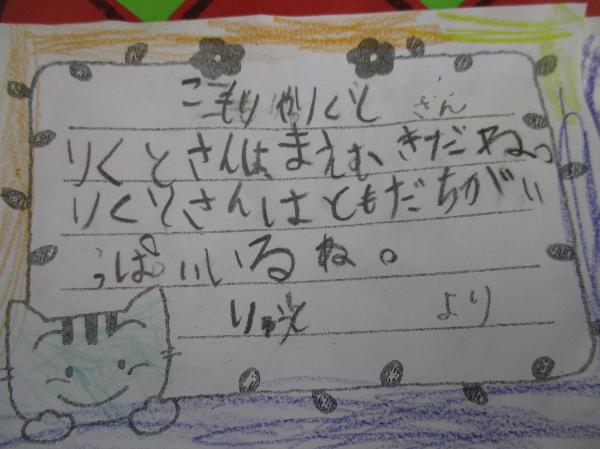 こもりやりくと さん
りくとさんは、まえむきだね。
りくとさんはともだちがい
っぱいいるね。
より